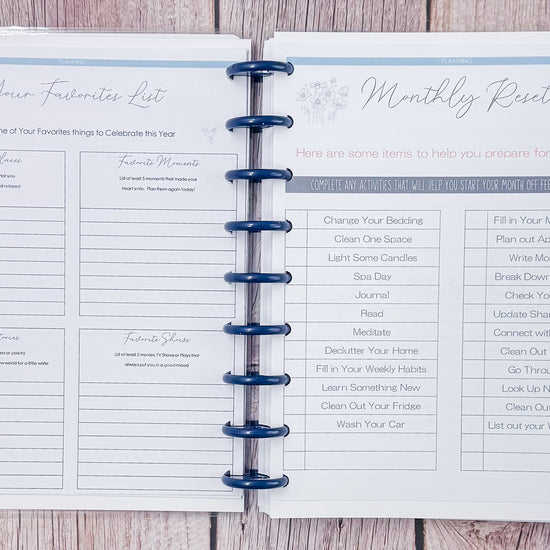 PLANNING
Your Favorites List
of your Favorites things to Celebrate this Year
Favorite Moments
List at least 5 moments that made your
heart smile. Plan them again today!
Favorite Shows
List at least 5 movies, TV Shows or Plays that
always put you in a good mood
PLANNING
Monthly Reset
Here are some items to help you prepare for
COMPLETE ANY ACTIVITIES THAT WILL HELP YOU START YOUR MONTH OFF
Change Your Bedding
Clean One Space
Light Some Candles
Spa Day
Journal
Read
Meditate
Declutter Your Home
Fill in Your Weekly Habits
Learn Something New
Clean Out Your Fridge
Wash Your Car
Fill in Your
Plan out
Write
Break Down
Check
Update
Connect with
Clean Out
Go
Look Up
Clean
List out your